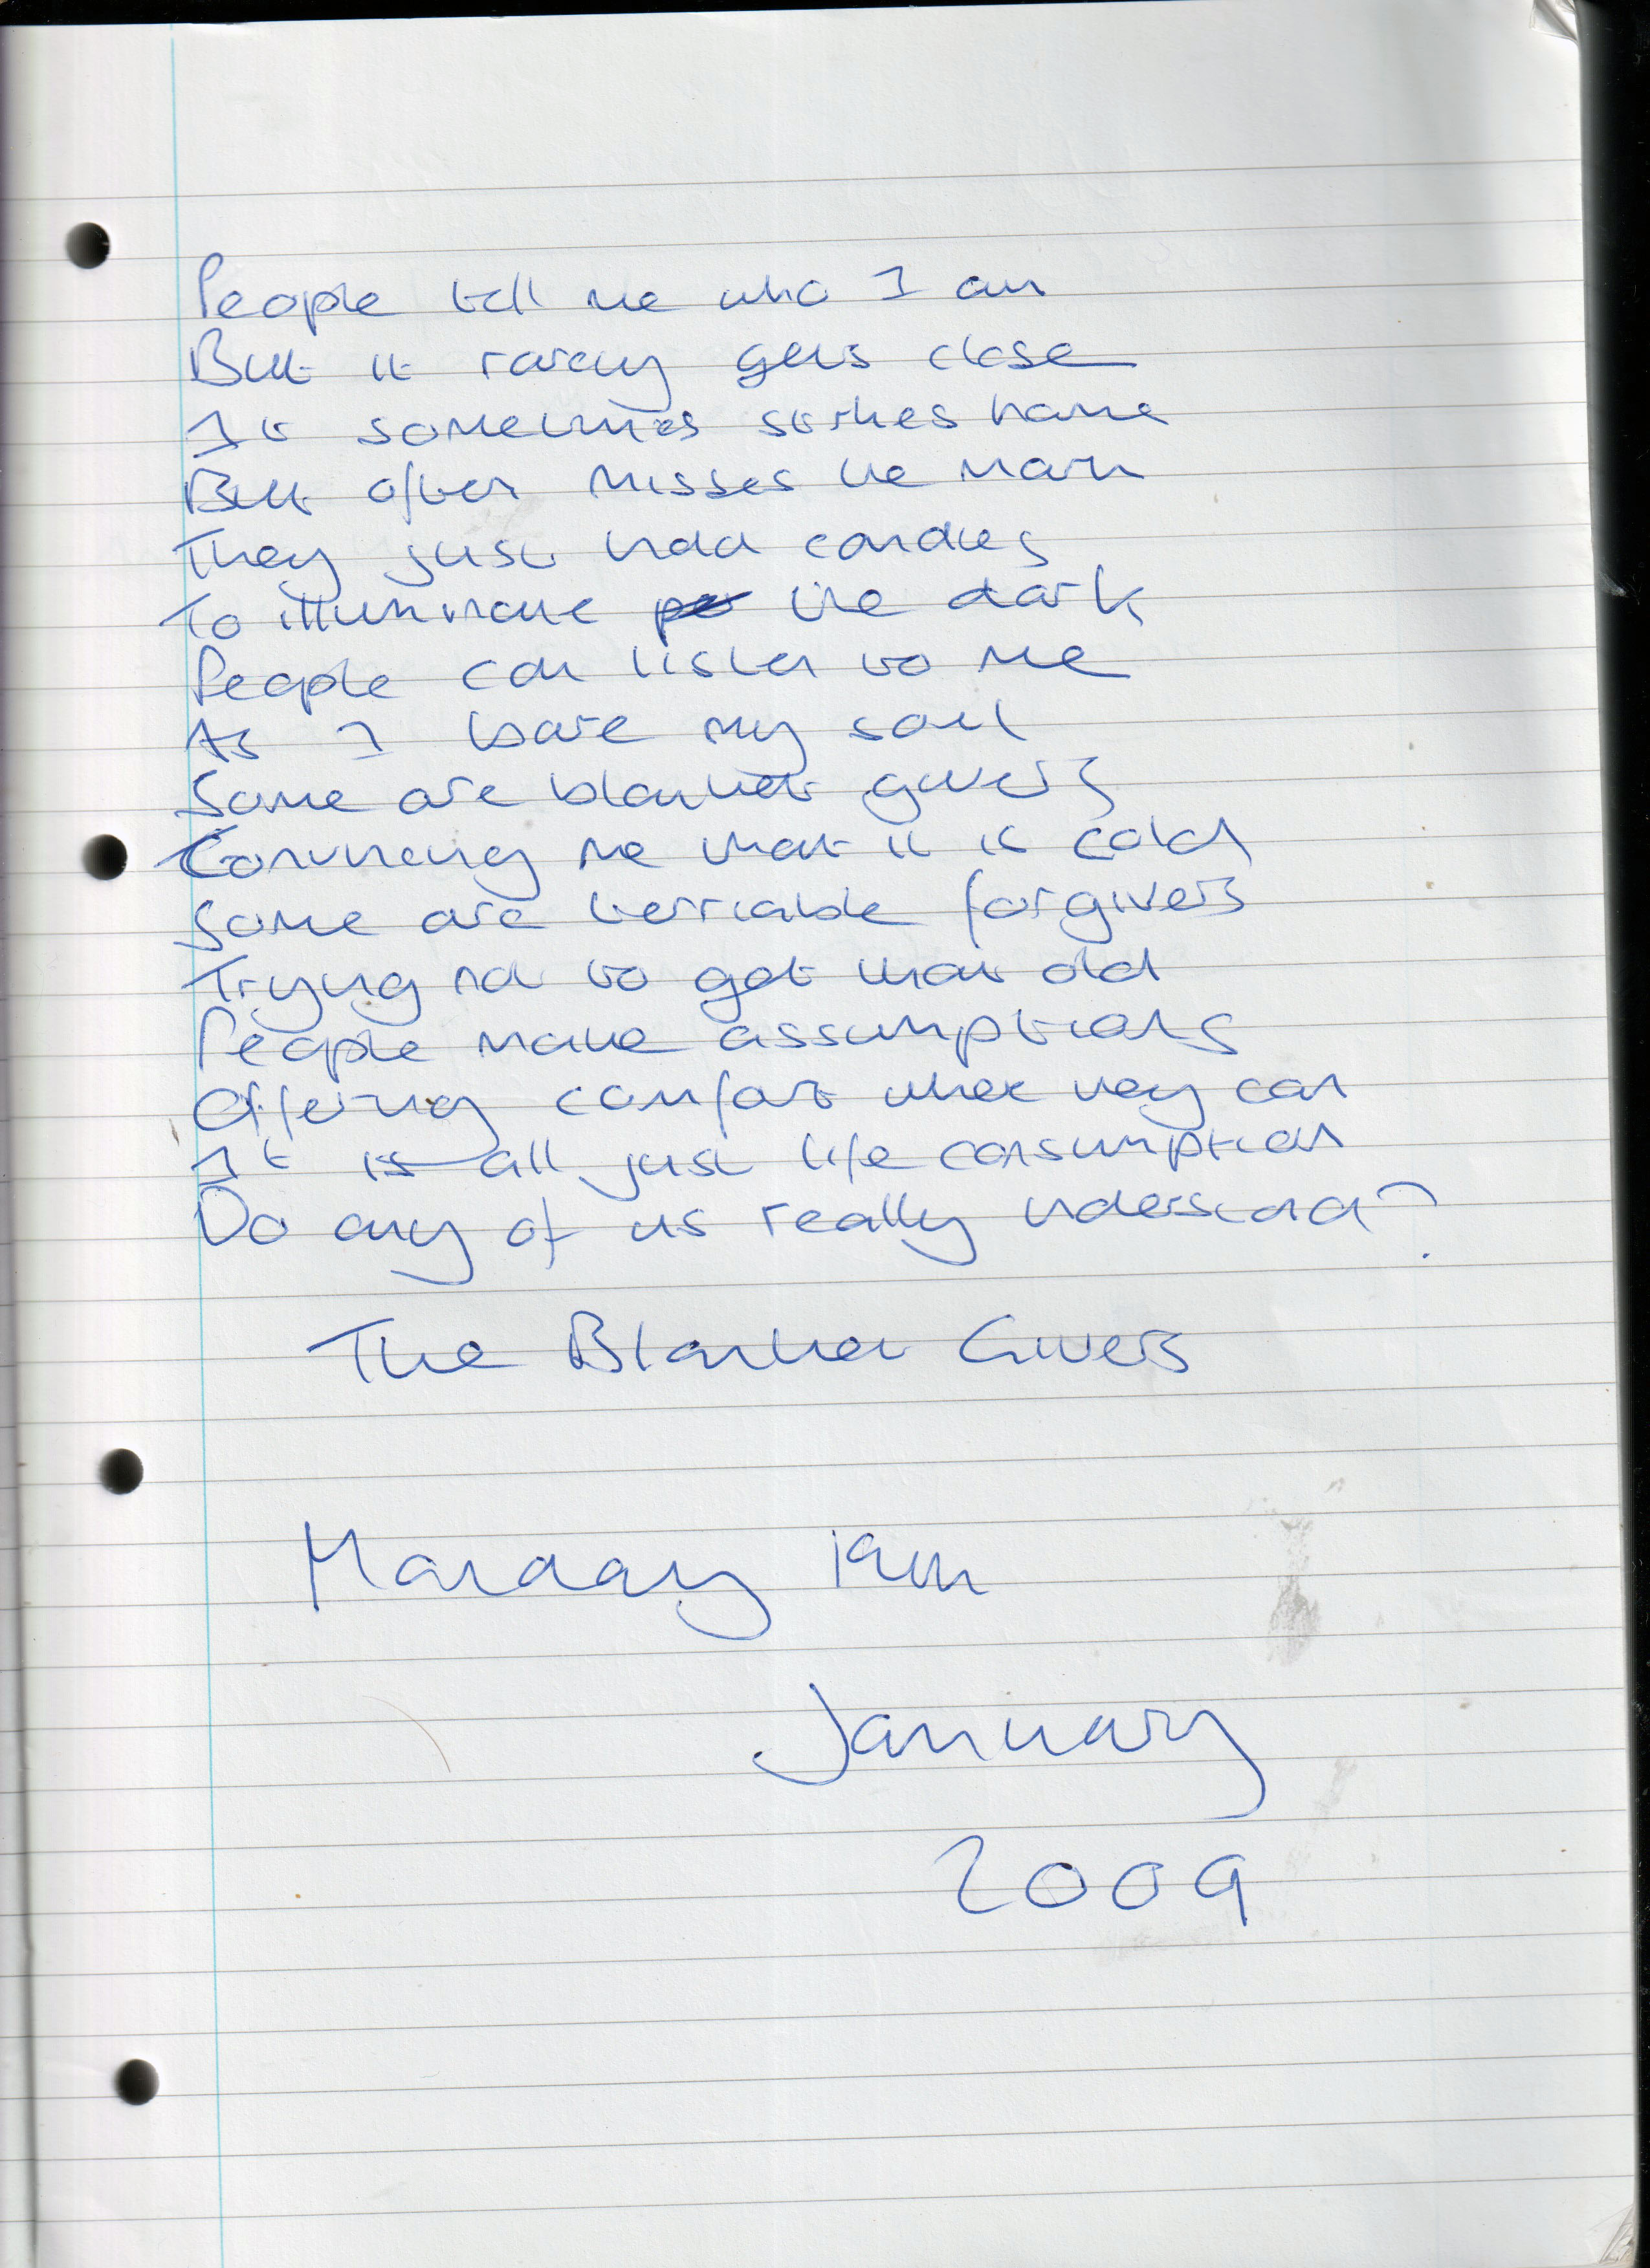 People tell me who I am
But it rarely gets close
It sometimes strikes home
But often misses the mark
They just hold candles
To illuminate the dark
People can listen to me
As I bare my soul
Some are blanket givers
Convincing me that it is cold
Some are terriable forgivers
Trying not to get that old
People make assumptions
Offering comfort where they can
It is all just life consumption
Do any of us really understand?
The Blanket Givers
Monday 19th
January
2009